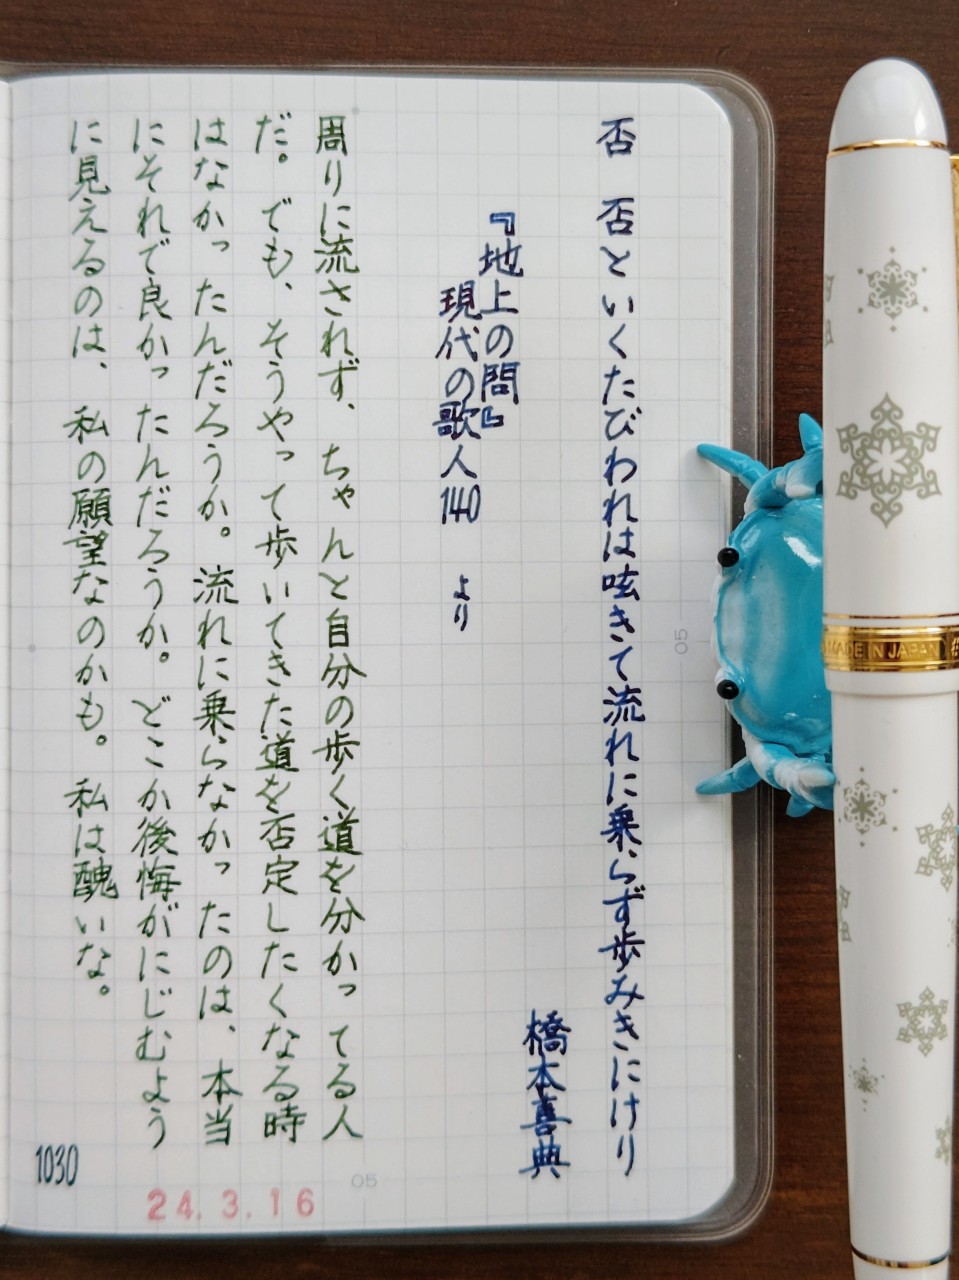 否　否といくたびわれは呟きて流れに乗らず歩みきにけり
橋本喜典
『地上の問』
現代の歌人140　より
周りに流されず、ちゃんと自分の歩く道を分かってる人
だ。でも、そうやって歩いてきた道を否定したくなる時
はなかったんだろうか。流れに乗らなかったのは、本当
にそれで良かったんだろうか。どこか後悔がにじむよう
に見えるのは、私の願望なのかも。私は醜いな。
1030
24.3.16
05
05
MADE IN JAPAN